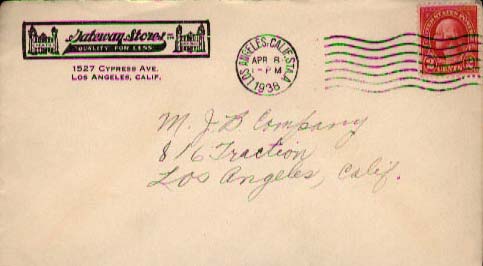 Gateway Stores LTD.
"QUALITY FOR LESS"
1527 CYPRESS AVE.
LOS ANGELES, CALIF.
LOS ANGELES, CALIF. STA. A
APR 8
1938
M. J. B Company
816 Traction
Los Angeles, Calif.